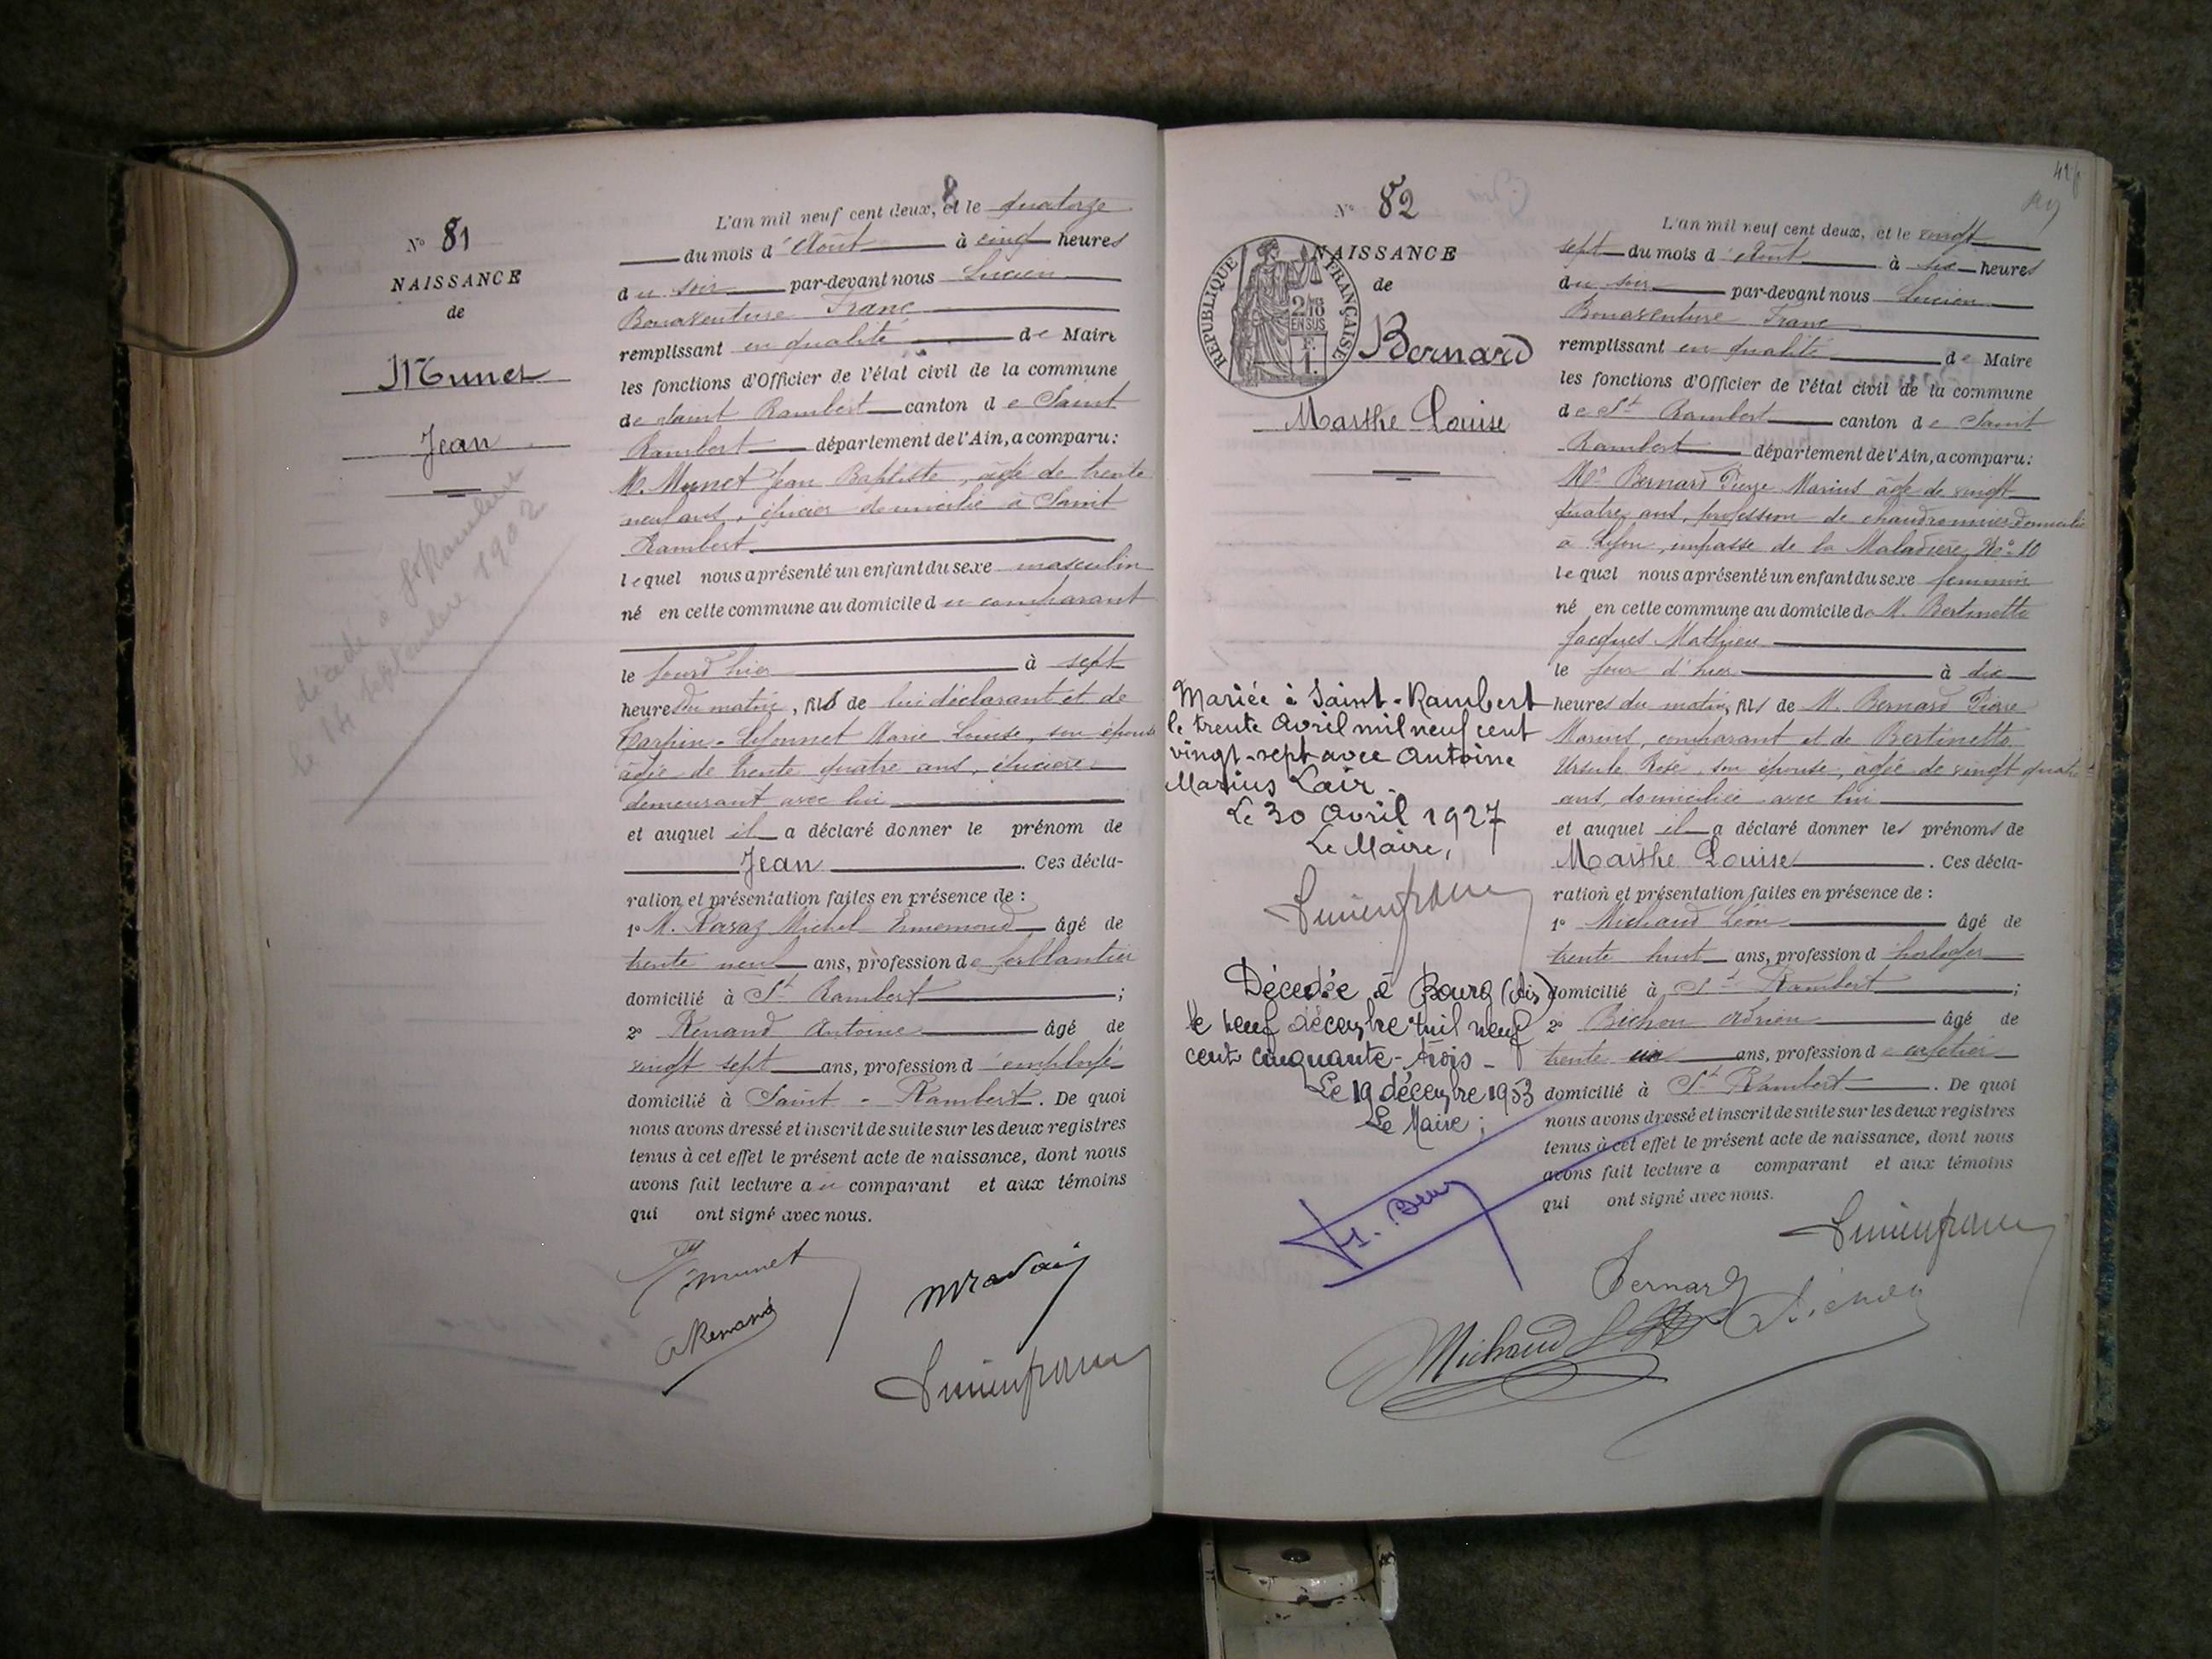 N° 81
NAISSANCE
de
Munet
Jean
décédé à St Rambert
le 14 septembre 1902
8
L'an mil neuf cent deux, et le quatorze
du mois d'Août à cinq heures
du soir par-devant nous Lucien
Bonaventure Franc
remplissant en qualité de Maire
les fonctions d'Officier de l'état civil de la commune
de Saint Rambert canton de Saint
Rambert département de l'Ain, a comparu:
M. Munet Jean Baptiste, âgé de trente
neuf ans, épicier domicilié à Saint
Rambert
lequel nous a présenté un enfant du sexe masculin
né en cette commune au domicile du comparant
le jourd'hier à sept
heures du matin, fils de lui déclarant et de
Carpin-Lyonnet Marie Louise, son épouse
âgée de trente quatre ans, épicière
demeurant avec lui
et auquel il a déclaré donner le prénom de
Jean. Ces décla-
ration et présentation faites en présence de :
1° M. Ravaz Michel Ennemond âgé de
trente neuf ans, profession de ferblantier
domicilié à St Rambert ;
2° Renand Antoine âgé de
vingt sept ans, profession d'employé
domicilié à Saint-Rambert. De quoi
nous avons dressé et inscrit de suite sur les deux registres
tenus à cet effet le présent acte de naissance, dont nous
avons fait lecture au comparant et aux témoins
qui ont signé avec nous.
Munet
MRavaz
ARenand
Lucien franc
N° 82
NAISSANCE
de
RÉPUBLIQUE FRANÇAISE
2/10
EN SUS
F.
1.
Bernard
Marthe Louise
Mariée à Saint-Rambert
le trente Avril mil neuf cent
vingt-sept avec Antoine
Marius Lair.
Le 30 Avril 1927
Le Maire,
Lucien franc
Décédée à Bourg (Ain)
le neuf décembre mil neuf
cent cinquante-trois-
Le 19 décembre 1953
Le Maire;
L'an mil neuf cent deux, et le vingt
sept du mois d'Août à six heures
du soir par-devant nous Lucien
Bonaventure Franc
remplissant en qualité de Maire
les fonctions d'Officier de l'état civil de la commune
de St Rambert canton de Saint
Rambert département de l'Ain, a comparu:
Mr Bernard Pierre Marius âgé de vingt
quatre ans, profession de chaudronnier domicilié
à Lyon, impasse de la Maladière, N° 10
lequel nous a présenté un enfant du sexe féminin
né en cette commune au domicile de M. Bertinetto
Jacques Mathieu
le jour d'hier à dix
heures du matin, fils de M. Bernard Pierre
Marius, comparant et de Bertinetto
Ursule Rose, son épouse, âgée de vingt quatre
ans, domiciliée avec lui
et auquel il a déclaré donner les prénoms de
Marthe Louise. Ces décla-
ration et présentation faites en présence de :
1° Michaud Léon âgé de
trente huit ans, profession d'horloger
domicilié à St Rambert ;
2° Bichon Adrien âgé de
trente un ans, profession de cafetier
domicilié à St Rambert. De quoi
nous avons dressé et inscrit de suite sur les deux registres
tenus à cet effet le présent acte de naissance, dont nous
avons fait lecture a comparant et aux témoins
qui ont signé avec nous.
Lucien franc
Bernard
Michaud
Bichon